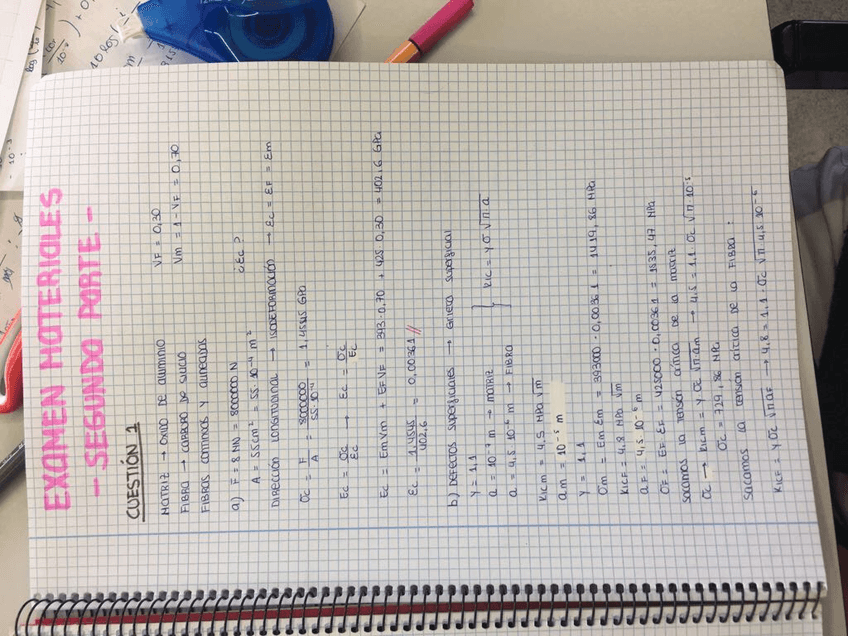 EXAMEN MATERIALES
- SEGUNDA PARTE -
CUESTIÓN 1
MATRIZ → OXIDO DE ALUMINIO    VF = 0,30
FIBRA → CARBURO DE SILICIO    Vm = 1 - VF = 0,70
FIBRAS CONTINUAS Y ALINEADAS
a) F = 8 MN = 8000000 N    ¿Ec?
A = 55cm² = 55·10⁻⁴ m²
DIRECCIÓN LONGITUDINAL → ISODEFORMACIÓN → εc = εF = εm
σc = F/A = 8000000/55·10⁻⁴ = 1,4545 GPa
Ec = σc/εc → εc = σc/Ec
Ec = EmVm + EFVF = 393·0,70 + 425·0,30 = 402,6 GPa
εc = 1,4545/402,6 = 0,00361//
b) DEFECTOS SUPERFICIALES → GRIETA SUPERFICIAL
Y = 1,1
a = 10⁻⁵ m → MATRIZ } KIC = Y σ √π·a
a = 4,5·10⁻⁶ m → FIBRA
KICM = 4,5 MPa √m
am = 10⁻⁵ m
Y = 1,1
σm = Em εm = 393000·0,00361 = 1419,86 MPa
KICF = 4,8 MPa √m
aF = 4,5·10⁻⁶ m
σF = EF εF = 425000·0,00361 = 1535,47 MPa
SACAMOS LA TENSIÓN CRÍTICA DE LA MATRIZ
σc → KICM = Y σc √π·am → 4,5 = 1,1·σc √π·10⁻⁵
σc = 729,86 MPa
SACAMOS LA TENSIÓN CRÍTICA DE LA FIBRA :
KICF = Y σc √π·aF → 4,8 = 1,1·σc √π·4,5·10⁻⁶